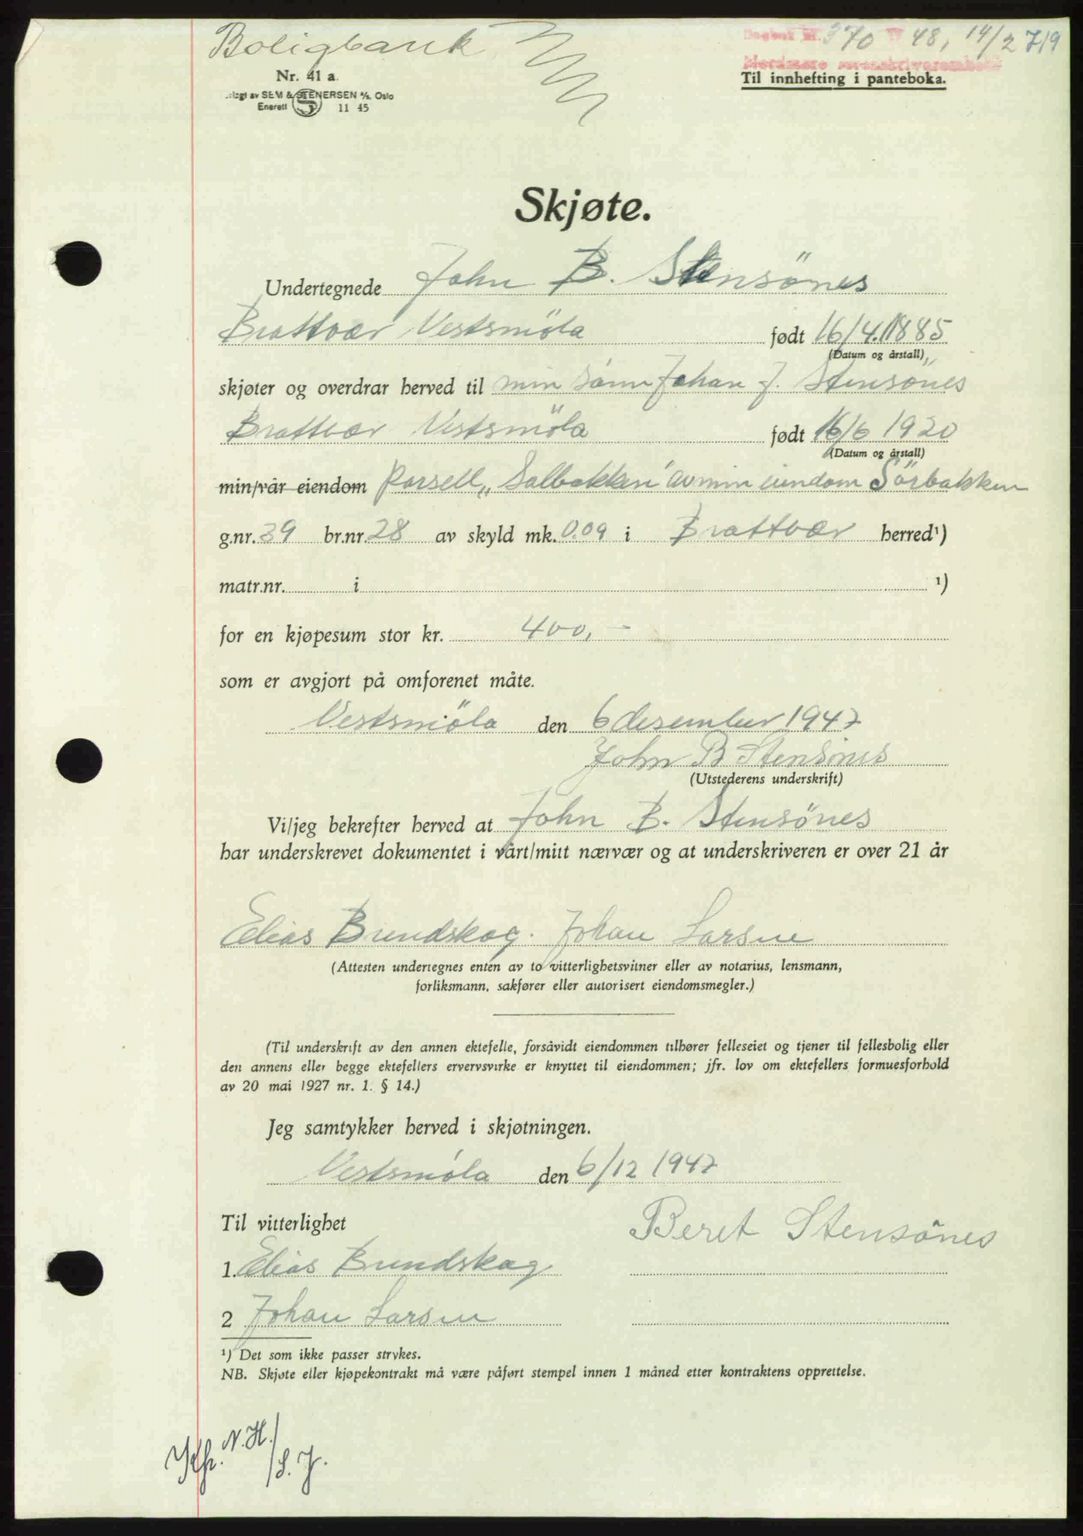 Boligbank
Dagbok nr. 370 19 48, 14/2 719
Nordmøre sorenskriverembete
Nr. 41 a.
Til innhefting i panteboka.
SEM & STENERSEN A/S, Oslo
Enerett S 11 45
Skjøte.
Undertegnede John B. Stensönes
Brattvær Vestsmöla født 16/4. 1885
(Datum og årstall)
skjøter og overdrar herved til min sönn Johan J. Stensönes
Brattvær Vestsmöla født 16/6 1920
(Datum og årstall)
min/vår eiendom parsell „Solbakken" av min eiendom Sörbakken
g.nr. 39 br.nr. 28 av skyld mk. 0.09 i Brattvær herred¹)
matr.nr. i ¹)
for en kjøpesum stor kr. 400,-
som er avgjort på omforenet måte.
Vestsmöla den 6 desember 1947
John B Stensönes
(Utstederens underskrift)
Vi/jeg bekrefter herved at John B. Stensönes
har underskrevet dokumentet i vårt/mitt nærvær og at underskriveren er over 21 år
Elias Brundskog. Johan Larsen
(Attesten undertegnes enten av to vitterlighetsvitner eller av notarius, lensmann,
forliksmann, sakfører eller autorisert eiendomsmegler.)
(Til underskrift av den annen ektefelle, forsåvidt eiendommen tilhører felleseiet og tjener til fellesbolig eller
den annens eller begge ektefellers ervervsvirke er knyttet til eiendommen; jfr. lov om ektefellers formuesforhold
av 20 mai 1927 nr. 1. § 14.)
Jeg samtykker herved i skjøtningen.
Vestsmöla den 6/12 1947
Til vitterlighet
Beret Stensönes
1. Elias Brundskog
2 Johan Larsen
¹) Det som ikke passer strykes.
NB. Skjøte eller kjøpekontrakt må være påført stempel innen 1 måned etter kontraktens opprettelse.
Kfr. N.H./S.J.